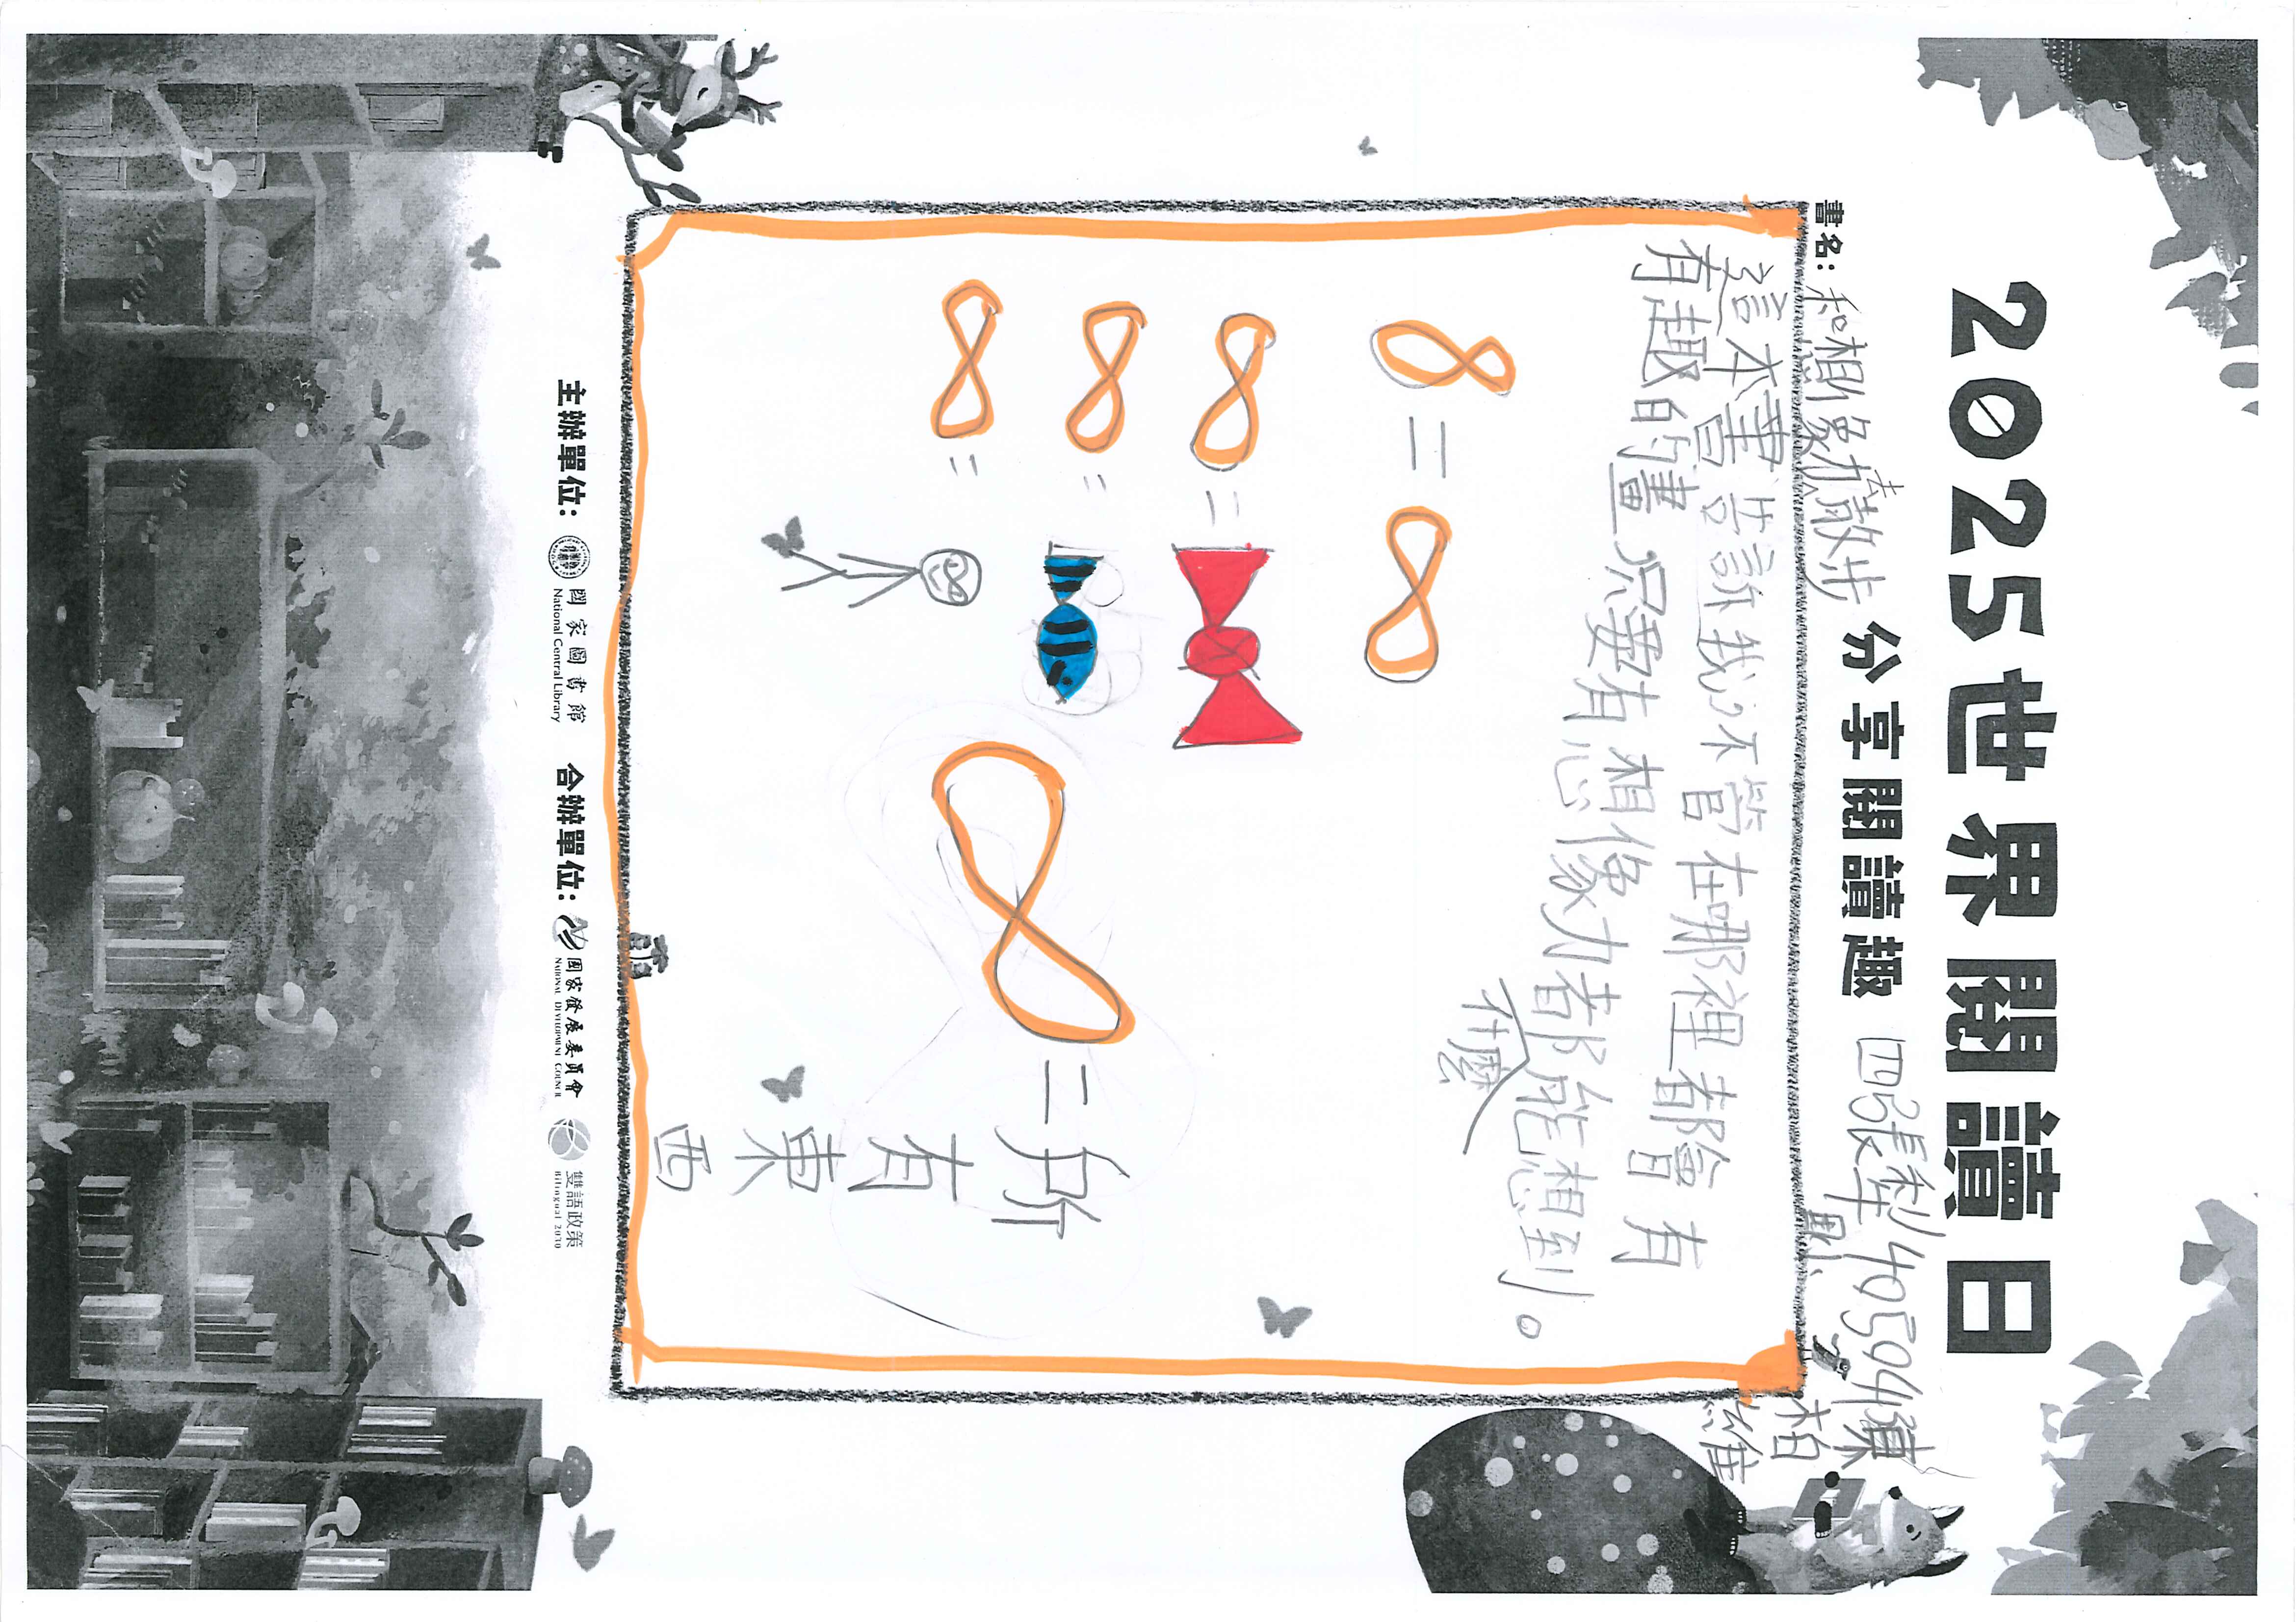 2025世界閱讀日
分享閱讀趣
書名: 和想像力散步
405094陳柏維
這本書告訴我,不管在哪裡都會有
有趣的畫只要有想像力都能想到。
什麼
8 = 8
8 =
8 =
8 =
8 = 所有東西
主辦單位: 國家圖書館 合辦單位: 國家發展委員會 雙語政策
National Central Library NATIONAL DEVELOPMENT COUNCIL Bilingual 2030